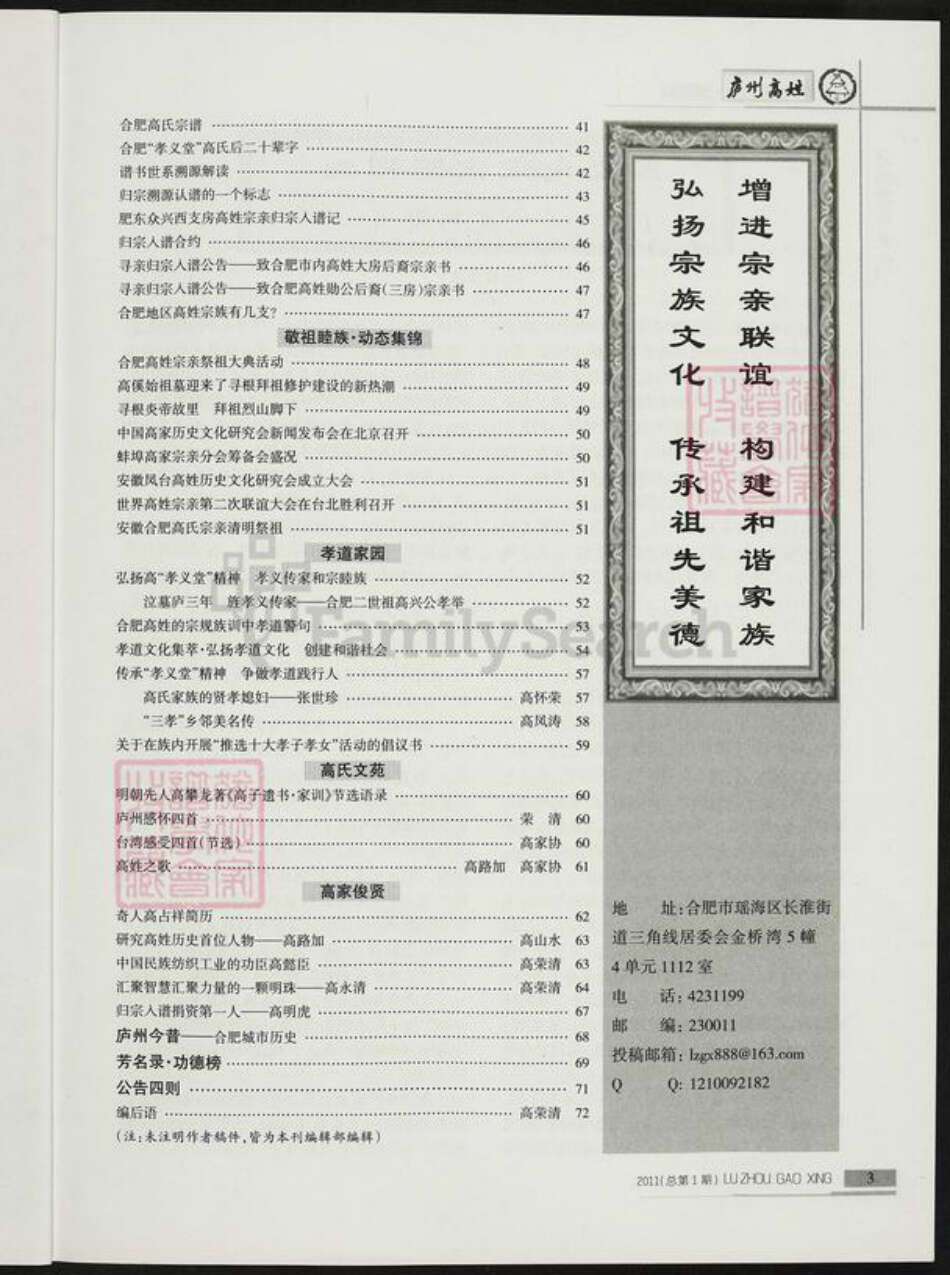 庐州高姓
合肥高氏宗谱 …… 41
合肥“孝义堂”高氏后二十辈字 …… 42
谱书世系溯源解读 …… 42
归宗溯源认谱的一个标志 …… 43
肥东众兴西支房高姓宗亲归宗入谱记 …… 45
归宗入谱合约 …… 46
寻亲归宗入谱公告——致合肥市内高姓大房后裔宗亲书 …… 46
寻亲归宗入谱公告——致合肥高姓勋公后裔(三房)宗亲书 …… 47
合肥地区高姓宗族有几支? …… 47
敬祖睦族·动态集锦
合肥高姓宗亲祭祖大典活动 …… 48
高傒始祖墓迎来了寻根拜祖修护建设的新热潮 …… 49
寻根炎帝故里　拜祖烈山脚下 …… 49
中国高家历史文化研究会新闻发布会在北京召开 …… 50
蚌埠高家宗亲分会筹备会盛况 …… 50
安徽凤台高姓历史文化研究会成立大会 …… 51
世界高姓宗亲第二次联谊大会在台北胜利召开 …… 51
安徽合肥高氏宗亲清明祭祖 …… 51
孝道家园
弘扬高“孝义堂”精神　孝义传家和宗睦族 …… 52
泣墓庐三年　旌孝义传家——合肥二世祖高兴公孝举 …… 52
合肥高姓的宗规族训中孝道警句 …… 53
孝道文化集萃·弘扬孝道文化　创建和谐社会 …… 54
传承“孝义堂”精神　争做孝道践行人 …… 57
高氏家族的贤孝媳妇——张世珍 …… 高怀荣 57
“三孝”乡邻美名传 …… 高凤涛 58
关于在族内开展“推选十大孝子孝女”活动的倡议书 …… 59
高氏文苑
明朝先人高攀龙著《高子遗书·家训》节选语录 …… 60
庐州感怀四首 …… 荣　清 60
台湾感受四首(节选) …… 高家协 60
高姓之歌 …… 高路加　高家协 61
高家俊贤
奇人高占祥简历 …… 62
研究高姓历史首位人物——高路加 …… 高山水 63
中国民族纺织工业的功臣高懿臣 …… 高荣清 63
汇聚智慧汇聚力量的一颗明珠——高永清 …… 高荣清 64
归宗入谱捐资第一人——高明虎 …… 67
庐州今昔——合肥城市历史 …… 68
芳名录·功德榜 …… 69
公告四则 …… 71
编后语 …… 高荣清 72
(注:未注明作者稿件,皆为本刊编辑部编辑)
增进宗亲联谊　构建和谐家族
弘扬宗族文化　传承祖先美德
地　　址:合肥市瑶海区长淮街
道三角线居委会金桥湾 5 幢
4 单元 1112 室
电　　话: 4231199
邮　　编: 230011
投稿邮箱: lzgx888@163.com
Q　　Q: 1210092182
2011(总第1期) LU ZHOU GAO XING 3
FamilySearch